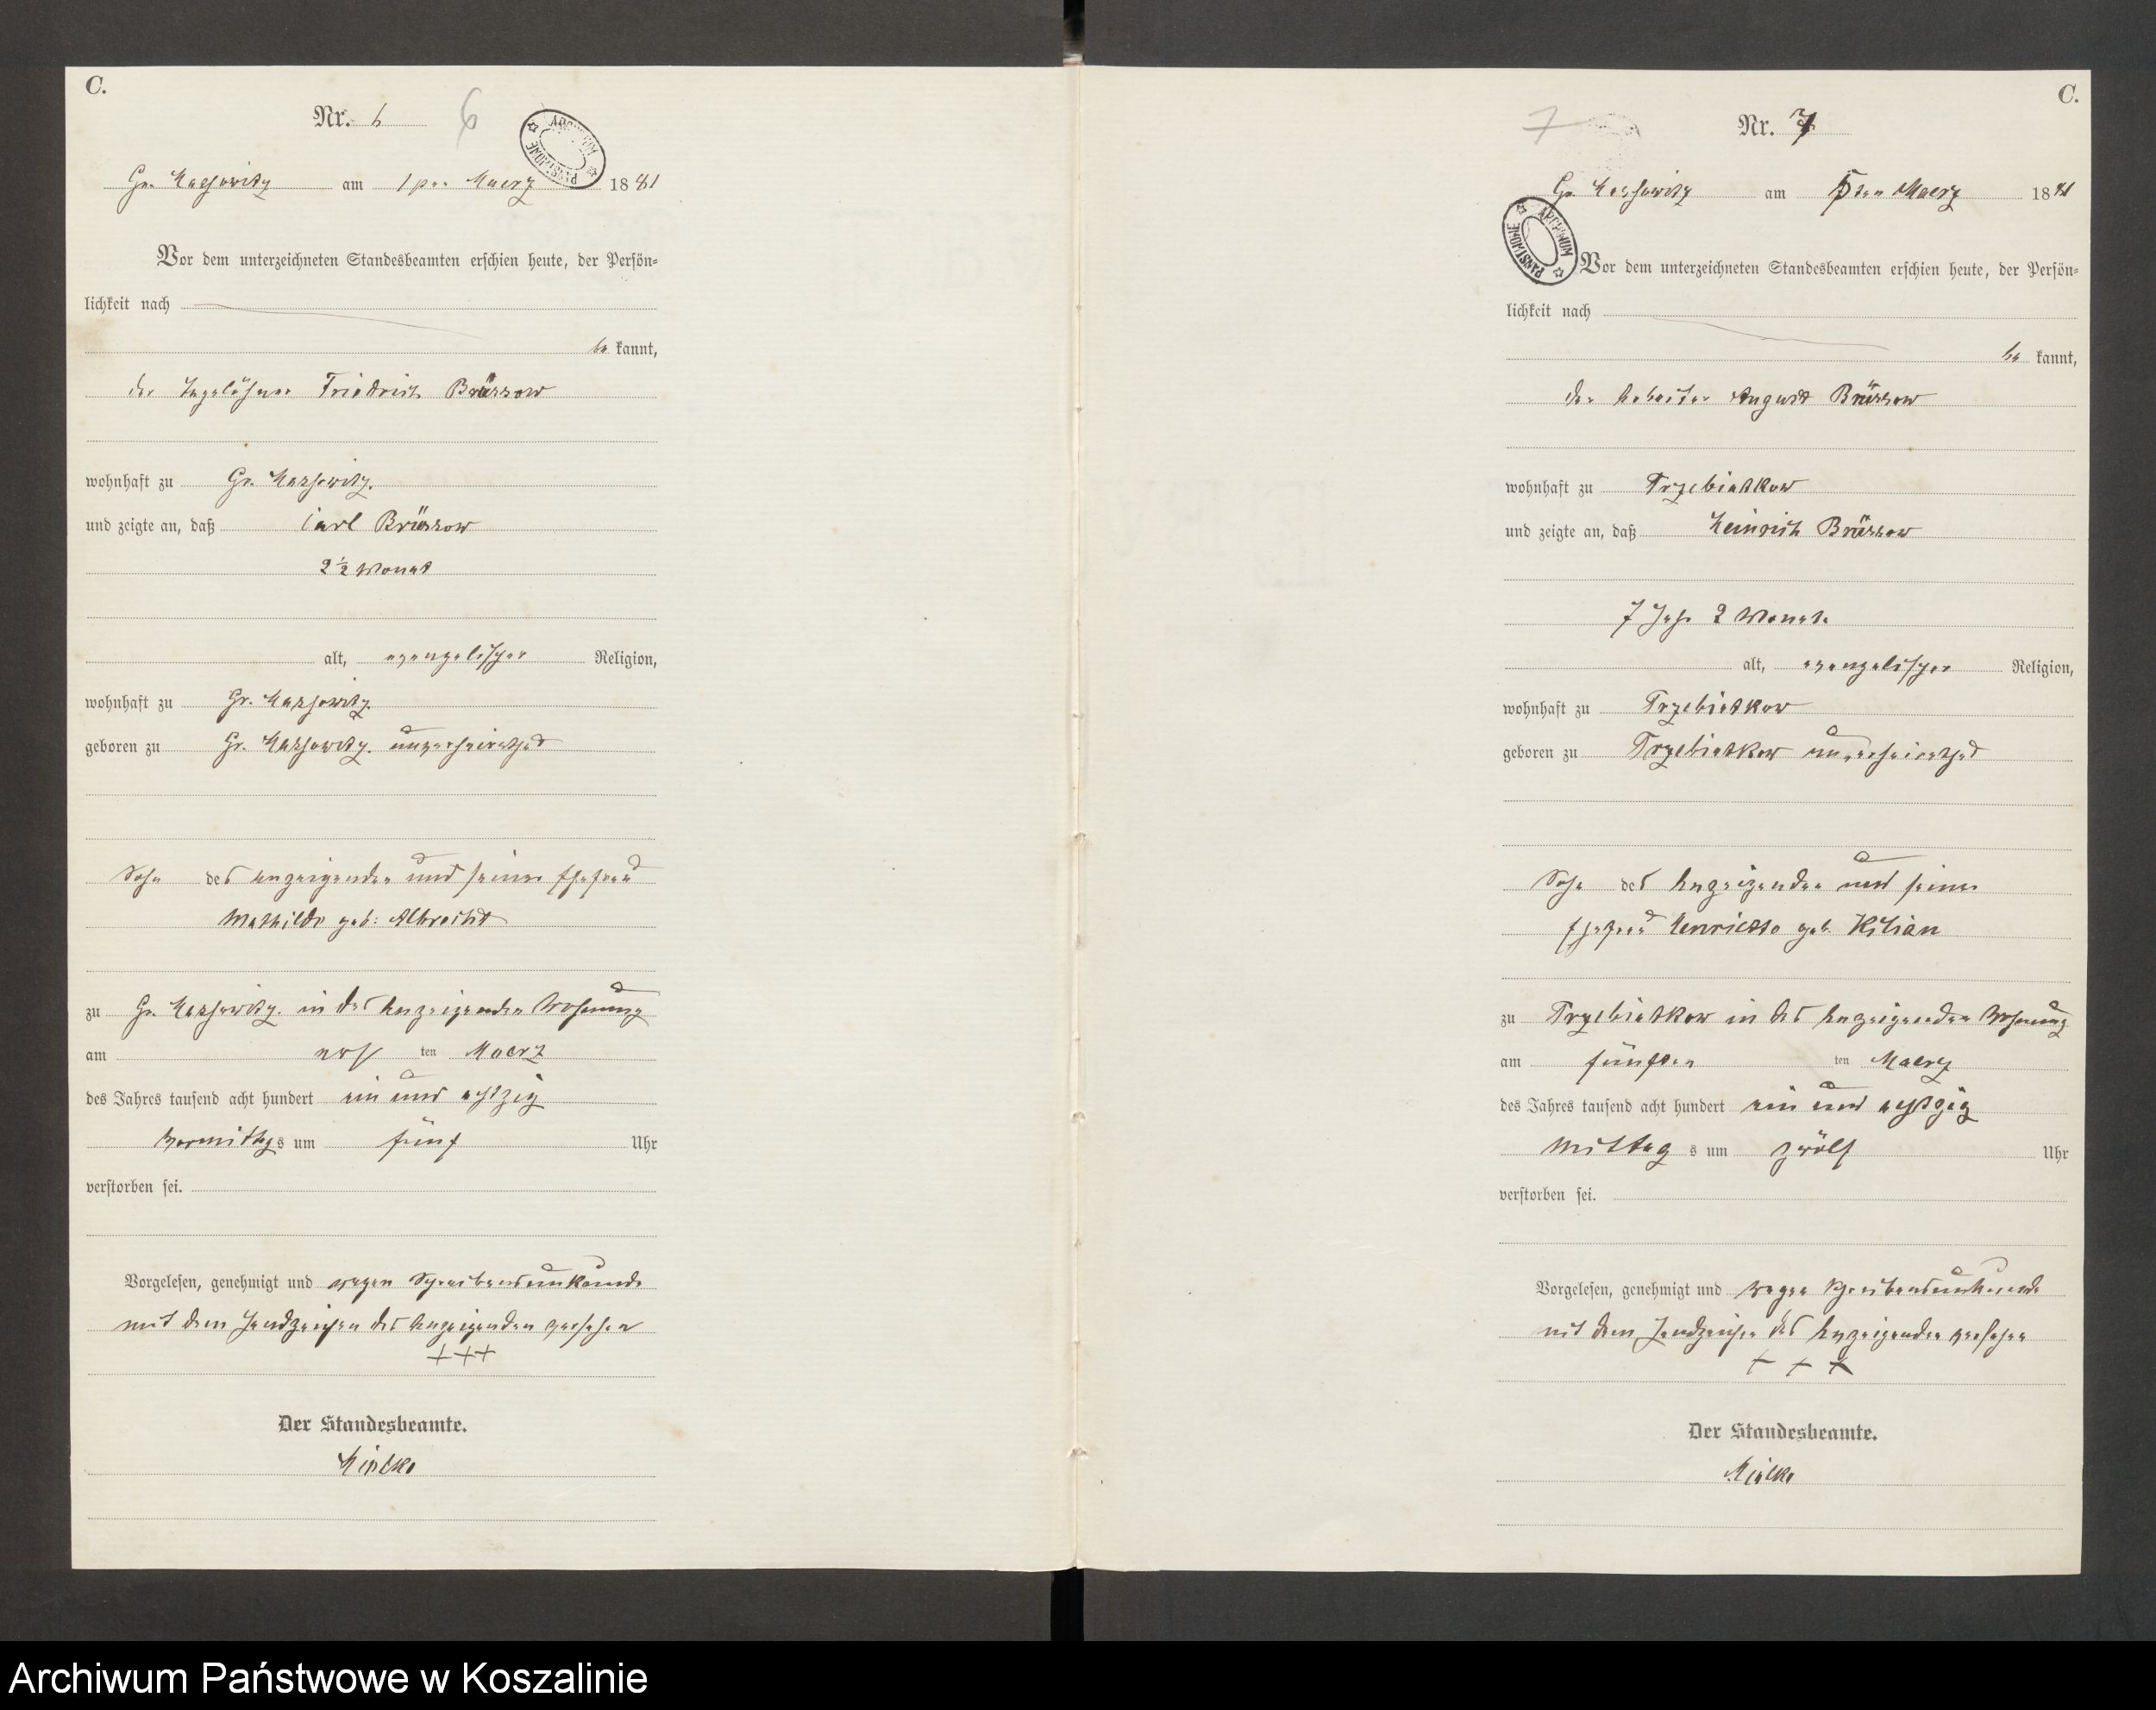 C.
Nr. 6 6
ARCHIWUM PAŃSTWOWE
Gr. Massowitz am 1ten Maerz 1881
Vor dem unterzeichneten Standesbeamten erschien heute, der Persön-
lichkeit nach
be kannt,
der Tagelöhner Friedrich Brüssow
wohnhaft zu Gr. Massowitz.
und zeigte an, daß Carl Brüssow
2½ Monat
alt, evangelischer Religion,
wohnhaft zu Gr. Massowitz
geboren zu Gr. Massowitz. unverheirathet
Sohn des Anzeigenden und seiner Ehefrau
Mathilde geb: Albrecht
zu Gr. Massowitz. in des Anzeigenden Wohnung
am ers ten Maerz
des Jahres tausend acht hundert ein und achtzig
Vormittags um fünf Uhr
verstorben sei.
Vorgelesen, genehmigt und wegen Schreibensunkunde
mit dem Handzeichen des Anzeigenden versehen
+++
Der Standesbeamte.
Mielke
C.
7 Nr. 7
Gr. Massowitz am 5ten Maerz 1881
ARCHIWUM PAŃSTWOWE
Vor dem unterzeichneten Standesbeamten erschien heute, der Persön-
lichkeit nach
be kannt,
der Arbeiter August Brüssow
wohnhaft zu Trzebiatkow
und zeigte an, daß Heinrich Brüssow
7 Jahr 2 Monate
alt, evangelischer Religion,
wohnhaft zu Trzebiatkow
geboren zu Trzebiatkow unverheirathet
Sohn des Anzeigenden und seiner
Ehefrau Henriette geb. Kilian
zu Trzebiatkow in des Anzeigenden Wohnung
am fünften ten Maerz
des Jahres tausend acht hundert ein und achtzig
Mittag s um zwölf Uhr
verstorben sei.
Vorgelesen, genehmigt und wegen Schreibensunkunde
mit dem Handzeichen des Anzeigenden versehen
+ + +
Der Standesbeamte.
Mielke
Archiwum Państwowe w Koszalinie